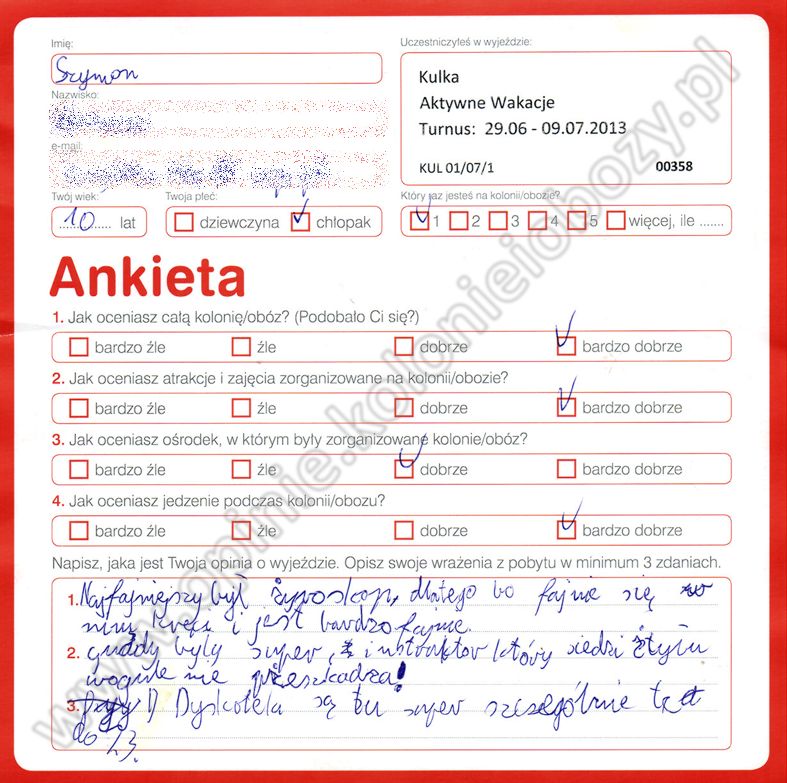 Imię:
Szymon
Nazwisko:
e-mail:
Twój wiek:
10 lat
Twoja płeć:
dziewczyna chłopak
Uczestniczyłeś w wyjeździe:
Kulka
Aktywne Wakacje
Turnus: 29.06 - 09.07.2013
KUL 01/07/1 00358
Który raz jesteś na kolonii/obozie?
1 2 3 4 5 więcej, ile .......
Ankieta
1. Jak oceniasz całą kolonię/obóz? (Podobało Ci się?)
bardzo źle źle dobrze bardzo dobrze
2. Jak oceniasz atrakcje i zajęcia zorganizowane na kolonii/obozie?
bardzo źle źle dobrze bardzo dobrze
3. Jak oceniasz ośrodek, w którym były zorganizowane kolonie/obóz?
bardzo źle źle dobrze bardzo dobrze
4. Jak oceniasz jedzenie podczas kolonii/obozu?
bardzo źle źle dobrze bardzo dobrze
Napisz, jaka jest Twoja opinia o wyjeździe. Opisz swoje wrażenia z pobytu w minimum 3 zdaniach.
1. Najfajniejszy był żyroskop, dlatego bo fajnie się w
nim kręci i jest bardzo fajnie.
2. quady były super, i instruktor który siedzi ztyłu
wogule nie przeszkadza!
3. Dyskoteka są tu super szczególnie ta
do 23.
www.opinie.kolonieiobozy.pl